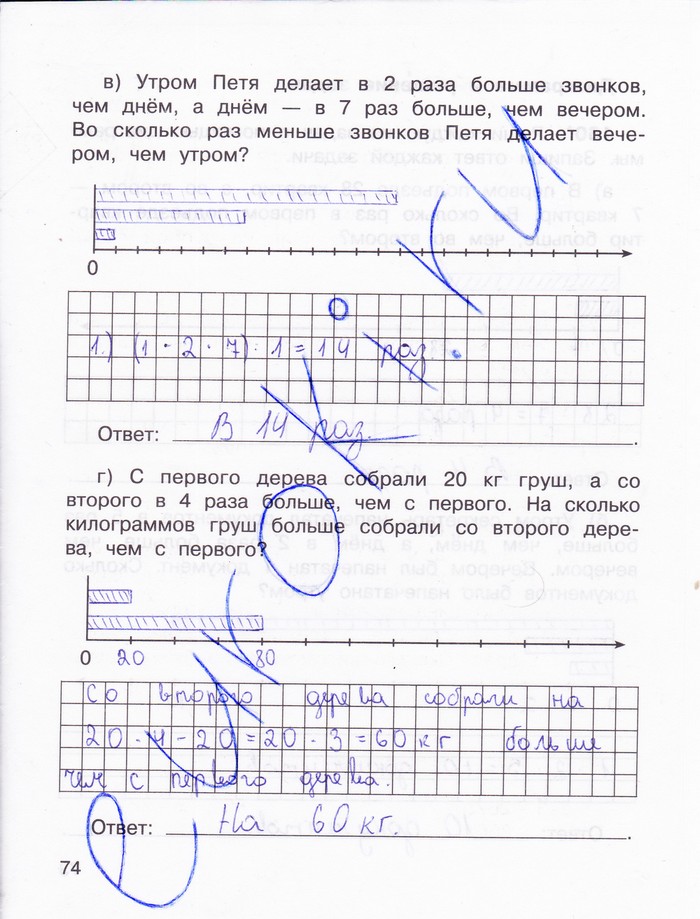 в) Утром Петя делает в 2 раза больше звонков,
чем днём, а днём — в 7 раз больше, чем вечером.
Во сколько раз меньше звонков Петя делает вече-
ром, чем утром?
0
1.) (1 · 2 · 7) : 1 = 14 раз.
Ответ: В 14 раз.
г) С первого дерева собрали 20 кг груш, а со
второго в 4 раза больше, чем с первого. На сколько
килограммов груш больше собрали со второго дере-
ва, чем с первого?
0 20 80
Со второго дерева собрали на
20 · 4 - 20 = 20 · 3 = 60 кг больше
чем с первого дерева.
Ответ: На 60 кг.
74